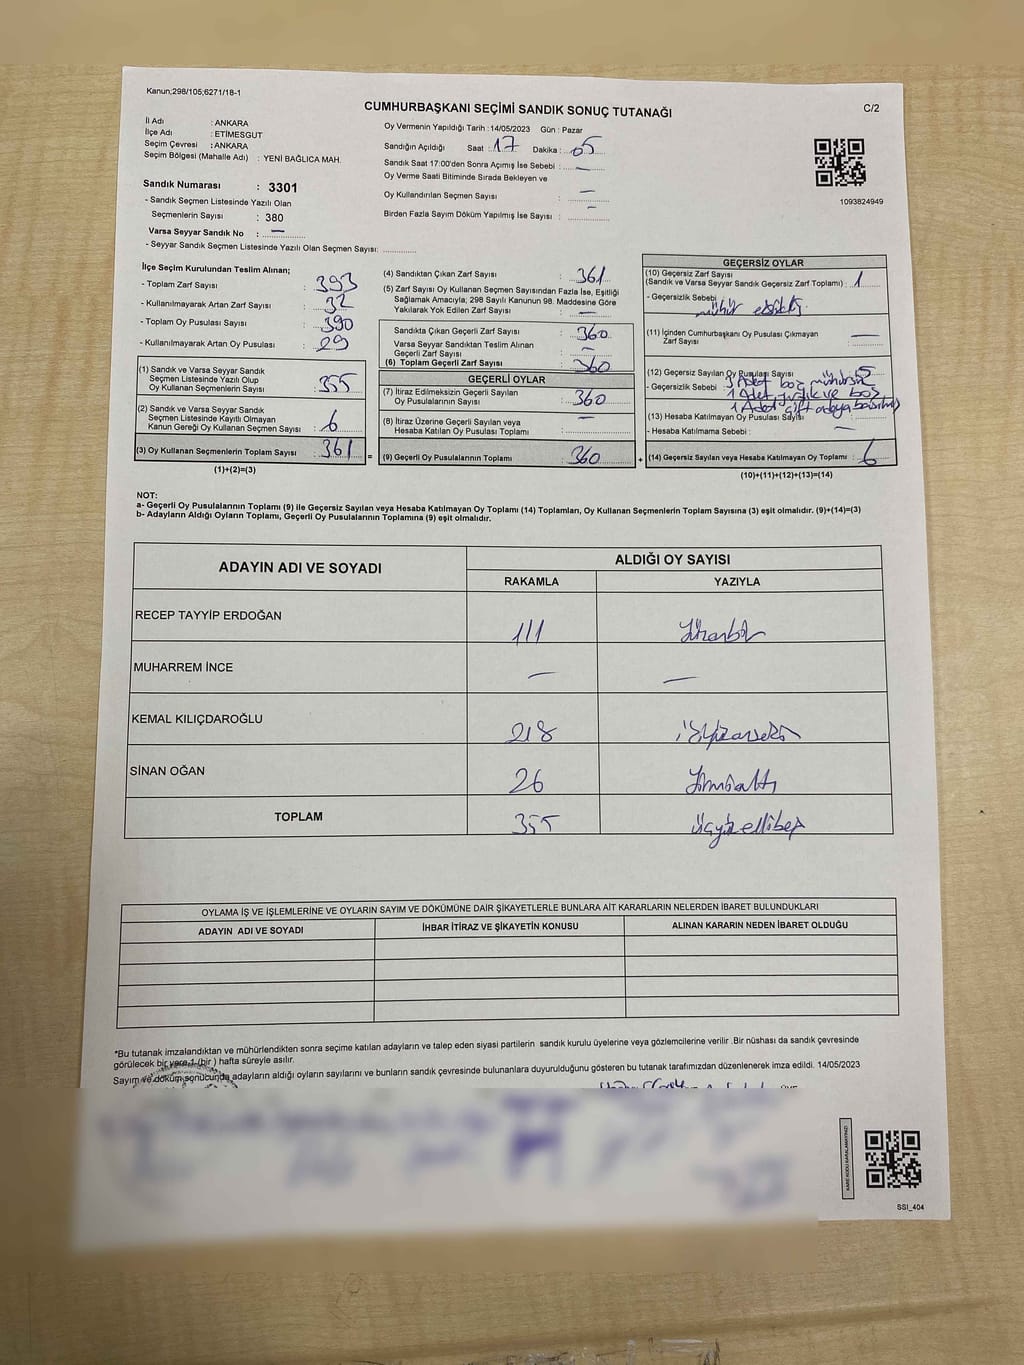 Kanun;298/105;6271/18-1
CUMHURBAŞKANI SEÇİMİ SANDIK SONUÇ TUTANAĞI
C/2
İl Adı : ANKARA
İlçe Adı : ETİMESGUT
Seçim Çevresi : ANKARA
Seçim Bölgesi (Mahalle Adı) : YENİ BAĞLICA MAH.
Sandık Numarası : 3301
- Sandık Seçmen Listesinde Yazılı Olan
Seçmenlerin Sayısı : 380
Varsa Seyyar Sandık No : —
- Seyyar Sandık Seçmen Listesinde Yazılı Olan Seçmen Sayısı: ............
Oy Vermenin Yapıldığı Tarih : 14/05/2023 Gün : Pazar
Sandığın Açıldığı Saat : 17 Dakika : 05
Sandık Saat 17:00'den Sonra Açımış İse Sebebi : —
Oy Verme Saati Bitiminde Sırada Bekleyen ve
Oy Kullandırılan Seçmen Sayısı : —
Birden Fazla Sayım Döküm Yapılmış İse Sayısı : —
1093824949
İlçe Seçim Kurulundan Teslim Alınan;
- Toplam Zarf Sayısı : 393
- Kullanılmayarak Artan Zarf Sayısı : 32
- Toplam Oy Pusulası Sayısı : 390
- Kullanılmayarak Artan Oy Pusulası : 29
(1) Sandık ve Varsa Seyyar Sandık
Seçmen Listesinde Yazılı Olup
Oy Kullanan Seçmenlerin Sayısı : 355
(2) Sandık ve Varsa Seyyar Sandık
Seçmen Listesinde Kayıtlı Olmayan
Kanun Gereği Oy Kullanan Seçmen Sayısı : 6
(3) Oy Kullanan Seçmenlerin Toplam Sayısı : 361 =
(1)+(2)=(3)
(4) Sandıktan Çıkan Zarf Sayısı : 361
(5) Zarf Sayısı Oy Kullanan Seçmen Sayısından Fazla İse, Eşitliği
Sağlamak Amacıyla, 298 Sayılı Kanunun 98. Maddesine Göre
Yakılarak Yok Edilen Zarf Sayısı : —
Sandıkta Çıkan Geçerli Zarf Sayısı : 360
Varsa Seyyar Sandıktan Teslim Alınan
Geçerli Zarf Sayısı : —
(6) Toplam Geçerli Zarf Sayısı : 360
GEÇERLİ OYLAR
(7) İtiraz Edilmeksizin Geçerli Sayılan
Oy Pusulalarının Sayısı : 360
(8) İtiraz Üzerine Geçerli Sayılan veya
Hesaba Katılan Oy Pusulası Toplamı : —
(9) Geçerli Oy Pusulalarının Toplamı : 360 +
GEÇERSİZ OYLAR
(10) Geçersiz Zarf Sayısı
(Sandık ve Varsa Seyyar Sandık Geçersiz Zarf Toplamı) : 1
- Geçersizlik Sebebi : mühür
(11) İçinden Cumhurbaşkanı Oy Pusulası Çıkmayan
Zarf Sayısı : —
(12) Geçersiz Sayılan Oy Pusulası Sayısı : 5
- Geçersizlik Sebebi : 3 Adet boş mühürsüz
1 Adet ve boş
1 Adet çift adaya basılmış
(13) Hesaba Katılmayan Oy Pusulası Sayısı
- Hesaba Katılmama Sebebi : —
(14) Geçersiz Sayılan veya Hesaba Katılmayan Oy Toplamı : 6
(10)+(11)+(12)+(13)=(14)
NOT:
a- Geçerli Oy Pusulalarının Toplamı (9) ile Geçersiz Sayılan veya Hesaba Katılmayan Oy Toplamı (14) Toplamları, Oy Kullanan Seçmenlerin Toplam Sayısına (3) eşit olmalıdır. (9)+(14)=(3)
b- Adayların Aldığı Oyların Toplamı, Geçerli Oy Pusulalarının Toplamına (9) eşit olmalıdır.
ADAYIN ADI VE SOYADI
ALDIĞI OY SAYISI
RAKAMLA YAZIYLA
RECEP TAYYİP ERDOĞAN 111 Yüzonbir
MUHARREM İNCE — —
KEMAL KILIÇDAROĞLU 218 ikiyüzonsekiz
SİNAN OĞAN 26 Yirmialtı
TOPLAM 355 üçyüzellibeş
OYLAMA İŞ VE İŞLEMLERİNE VE OYLARIN SAYIM VE DÖKÜMÜNE DAİR ŞİKAYETLERLE BUNLARA AİT KARARLARIN NELERDEN İBARET BULUNDUKLARI
ADAYIN ADI VE SOYADI İHBAR İTİRAZ VE ŞİKAYETİN KONUSU ALINAN KARARIN NEDEN İBARET OLDUĞU
*Bu tutanak imzalandıktan ve mühürlendikten sonra seçime katılan adayların ve talep eden siyasi partilerin sandık kurulu üyelerine veya gözlemcilerine verilir .Bir nüshası da sandık çevresinde
görülecek bir yere 1 (bir ) hafta süreyle asılır.
Sayım ve döküm sonucunda adayların aldığı oyların sayılarını ve bunların sandık çevresinde bulunanlara duyurulduğunu gösteren bu tutanak tarafımızdan düzenlenerek imza edildi. 14/05/2023
KARE KODU KARALAMAYINIZ!
SSI_404